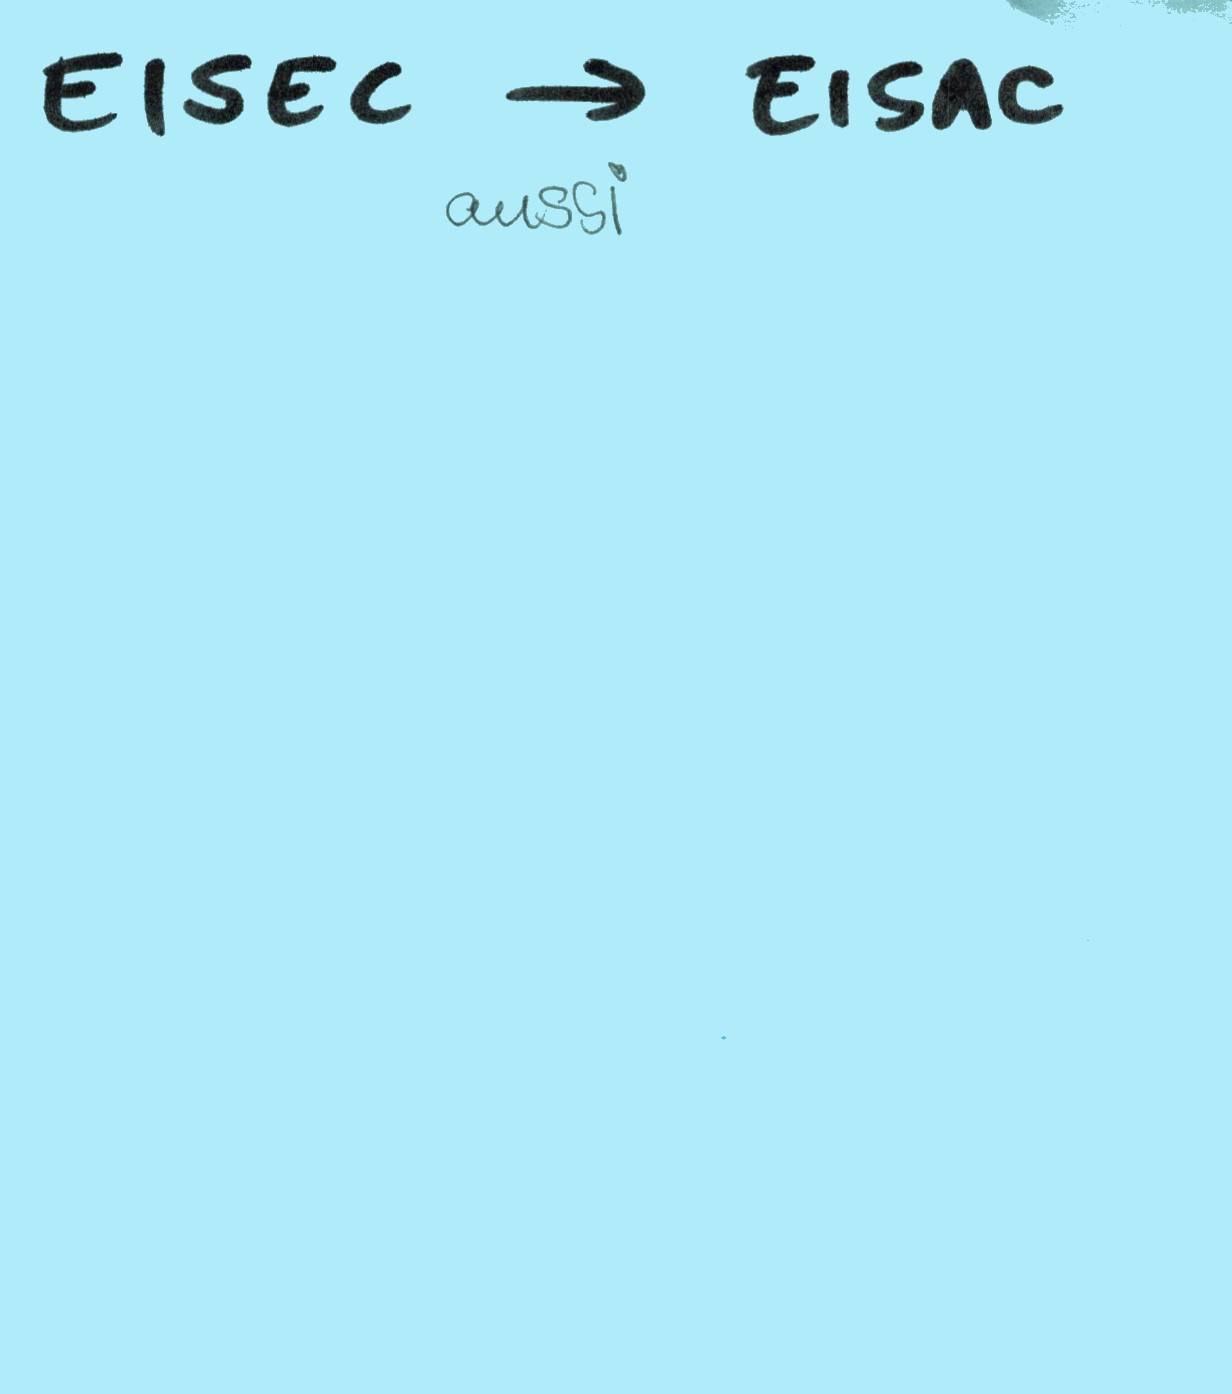 EISEC → EISAC
aussi